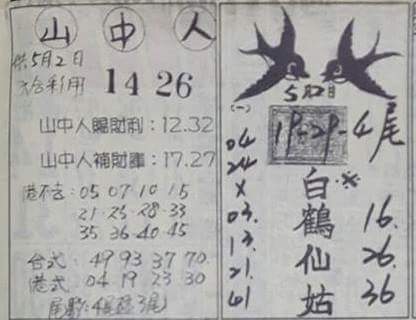 山中人
供5月2日
六合利用
14 26
山中人賜財利：12.32
山中人補財庫：17.27
港不言：05 07 10 15
21·25·28·33
35 36·40·45
台式：49 93 37 70
港式：04 19 23 30
尾數：4尾 3尾
5月2日
19-29-4尾
(一)
04
24
X
03.
13.
21.
41
白鶴仙姑
16.
26.
36